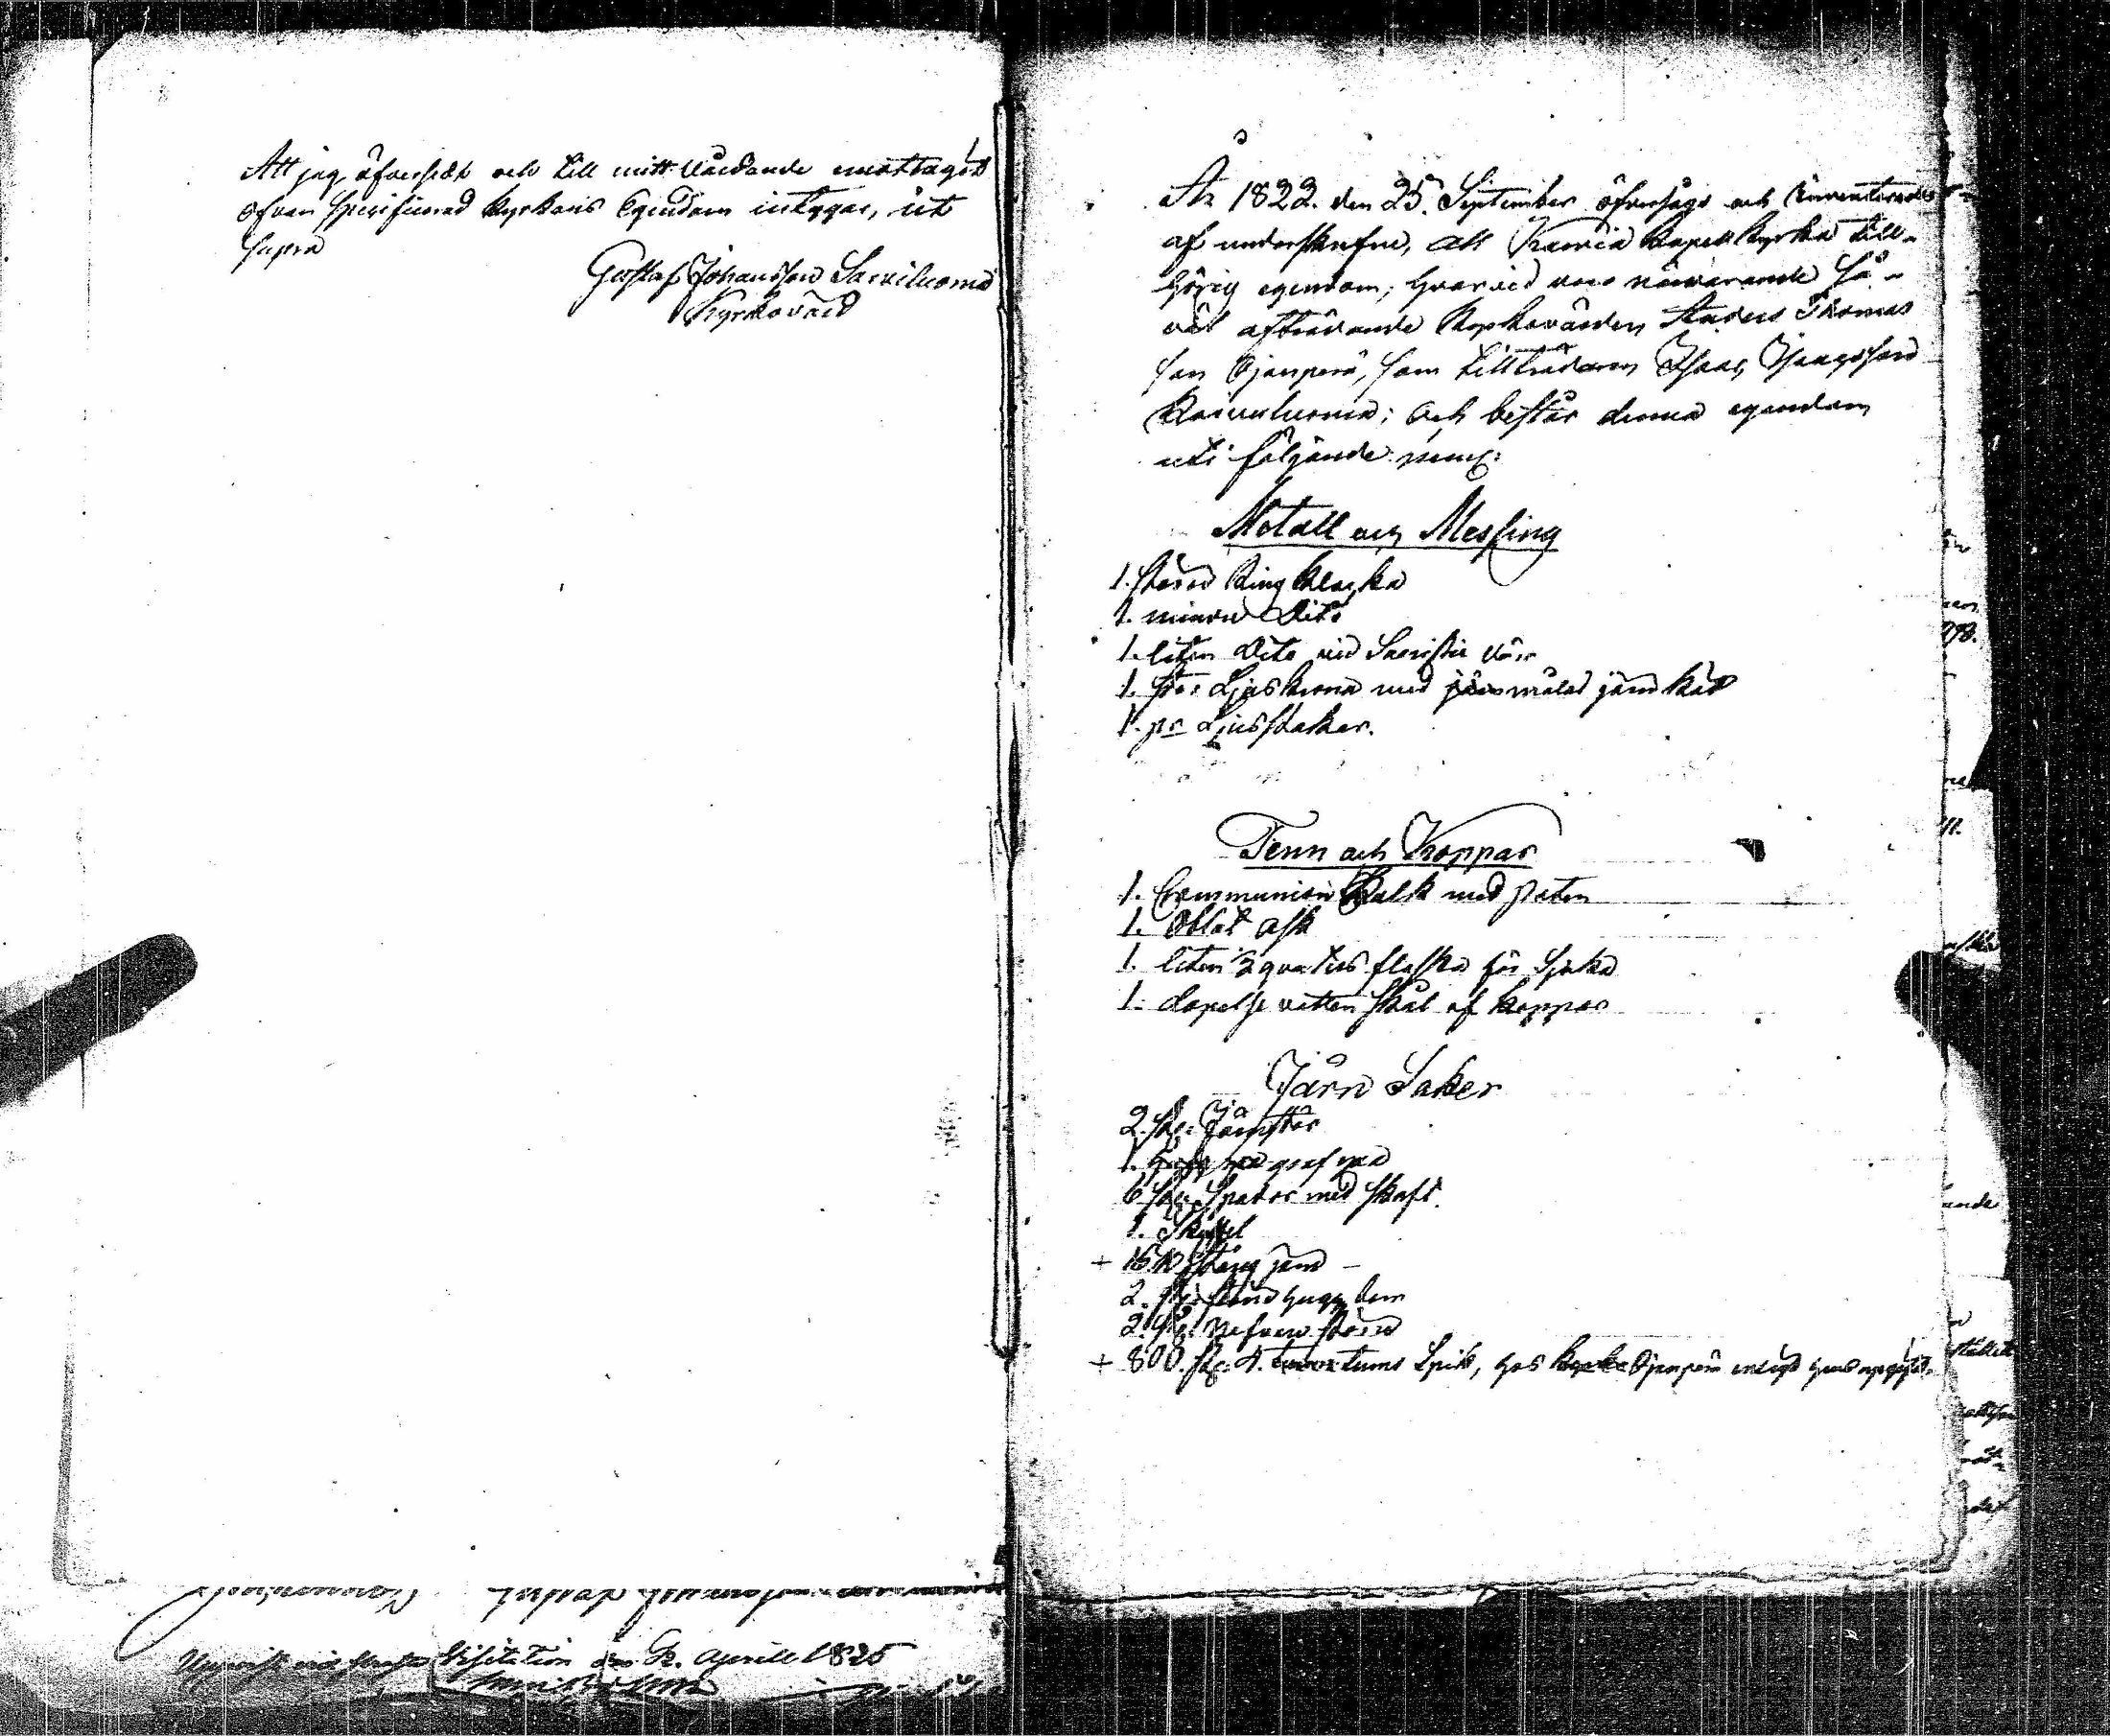 Att jag öfversedt och till mitt vårdande emottagit
ofvan specificerad kyrkans Egendom intygar, ut
supra
Gustaf Johansson Sarviluoma
Kyrkovärd
År 1822. den 25. September öfversågs och Inventerades
af underskrefne, all Kauvia kapell kyrka till-
hörig egendom; hvarvid voro närvarande så-
väl afträdande Kyrkovärden Anders Thomas
son Ojanperä, som tillträdaren Isaac Isaacsson
Koivuluoma; och består denna egendom
uti följande nemł:
Metall och Messing
1. större Ring klocka
1. mindre Dito
1. liten Dito vid Sacristie dörr
1. stor Ljuskrona med målad järn käd
1. pr Ljusstakar.
Tenn och Koppar
1. Communion Kalk med paten
1. Oblat ask
1. liten ½ qvarters flaska för Sjuka
1. döpelse vatten skål af koppar
Järn Saker
2. st. Järnstör
1.
6 st. Spador med skaft.
1. Skofvel
+ 15 ℔ Stång järn -
2. st.
2. st. Nafvare större
+ 800. st. 4. tums Spik, hos Ojanperä enligt hans uppgift.
Visitation den 12. Aprill 1825